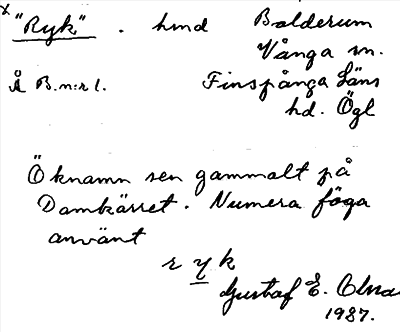 x "Ryk" . hmd Balderum
Vånga sn.
Å B.n:r 1. Finspånga Läns
hd. Ögl
Öknamn sen gammalt på
Damkärret. Numera föga
använt
r y k
Gustaf E. Olss
1987.